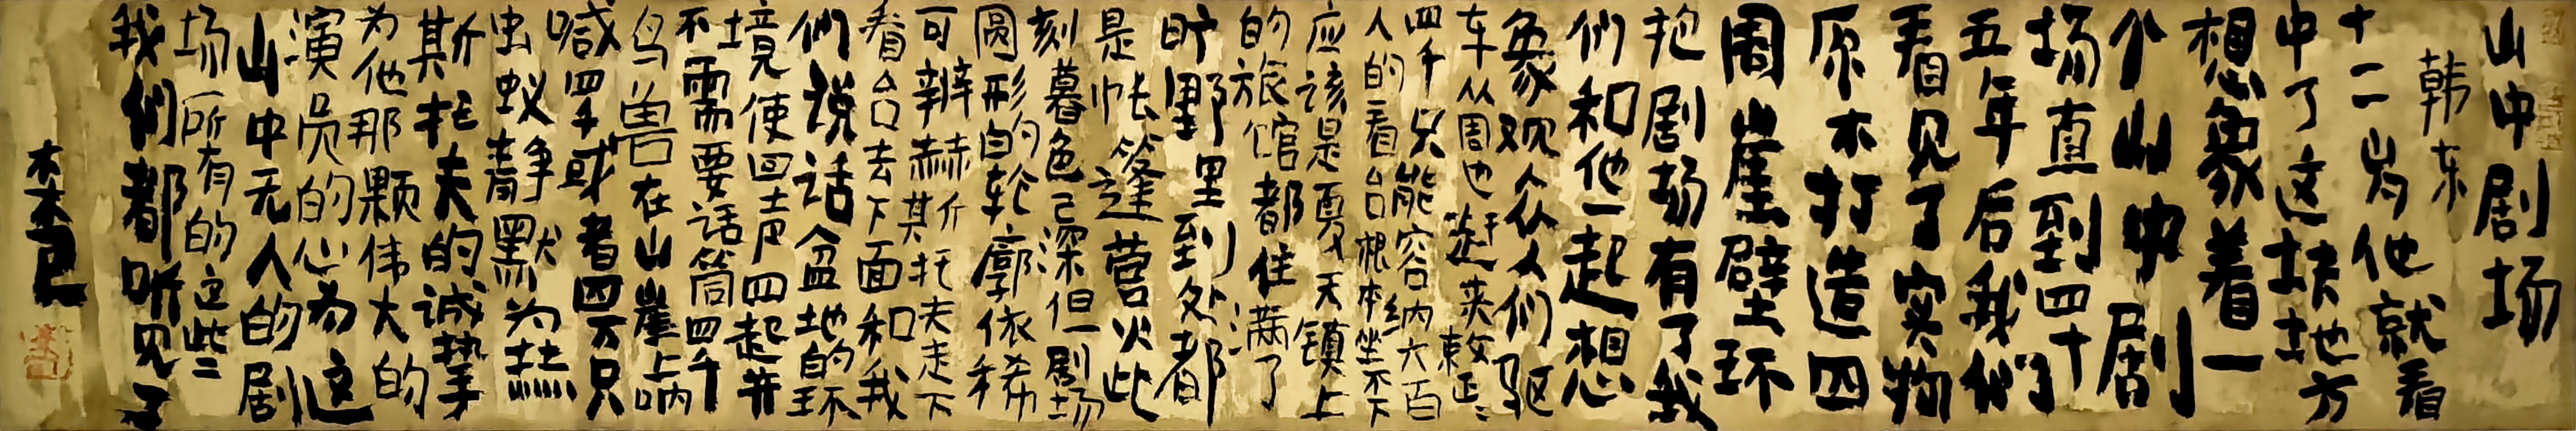 山中剧场
韩东
十二岁他就看
中了这块地方
想象着一
个山中剧
场直到四十
五年后我们
看见了实物
原木打造四
周崖壁环
抱剧场有了我
们和他一起想
象观众人们驱
车从周边赶来
四千只能容纳六百
人的看台根本坐不下
应该是夏天镇上
的旅馆都住满了
旷野里到处都
是帐篷营火此
刻暮色已深但剧场
圆形的轮廓依稀
可辨赫斯托夫走下
看台去下面和我
们说话盆地的环
境使回声四起并
不需要话筒四千
鸟兽在山崖上呐
喊四千或者四万只
虫蚁静默为赫
斯托夫的诚挚
为他那颗伟大的
演员的心为这
山中无人的剧
场所有的这些
我们都听见了